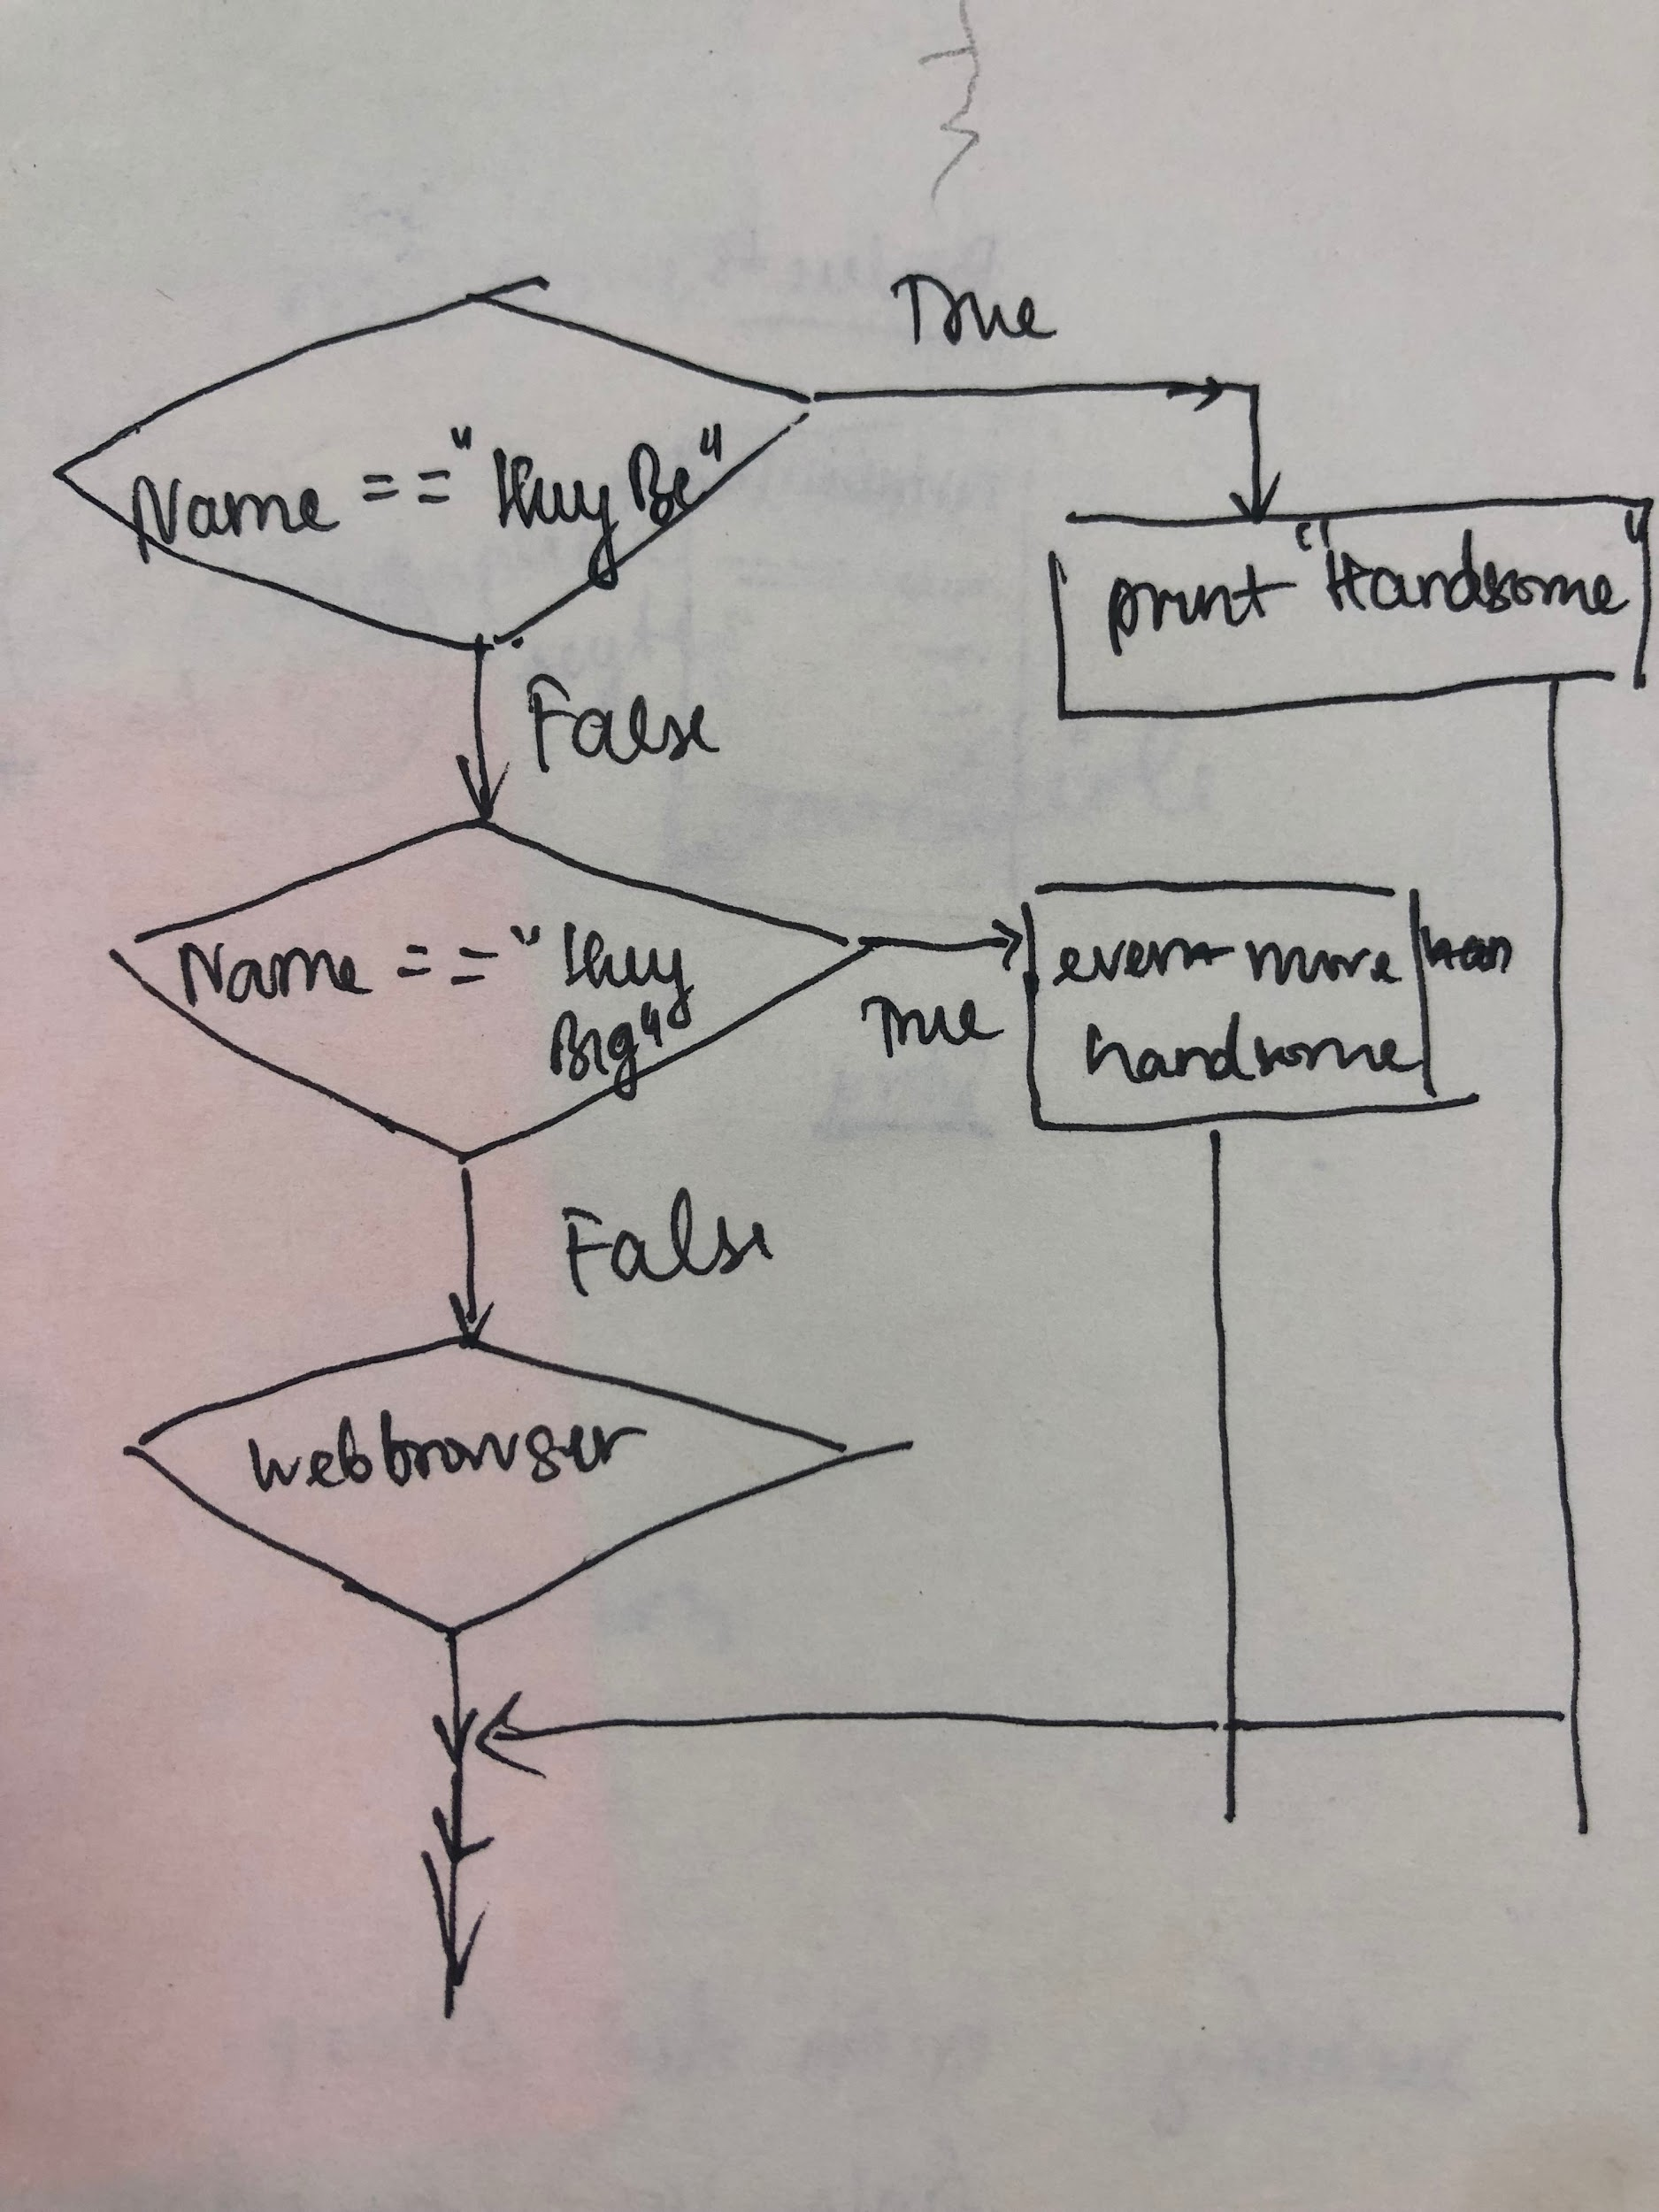 True
Name == "Huy Be"
print "Handsome"
False
Name == "Huy
Big"
True
even more
handsome
False
webbrowser